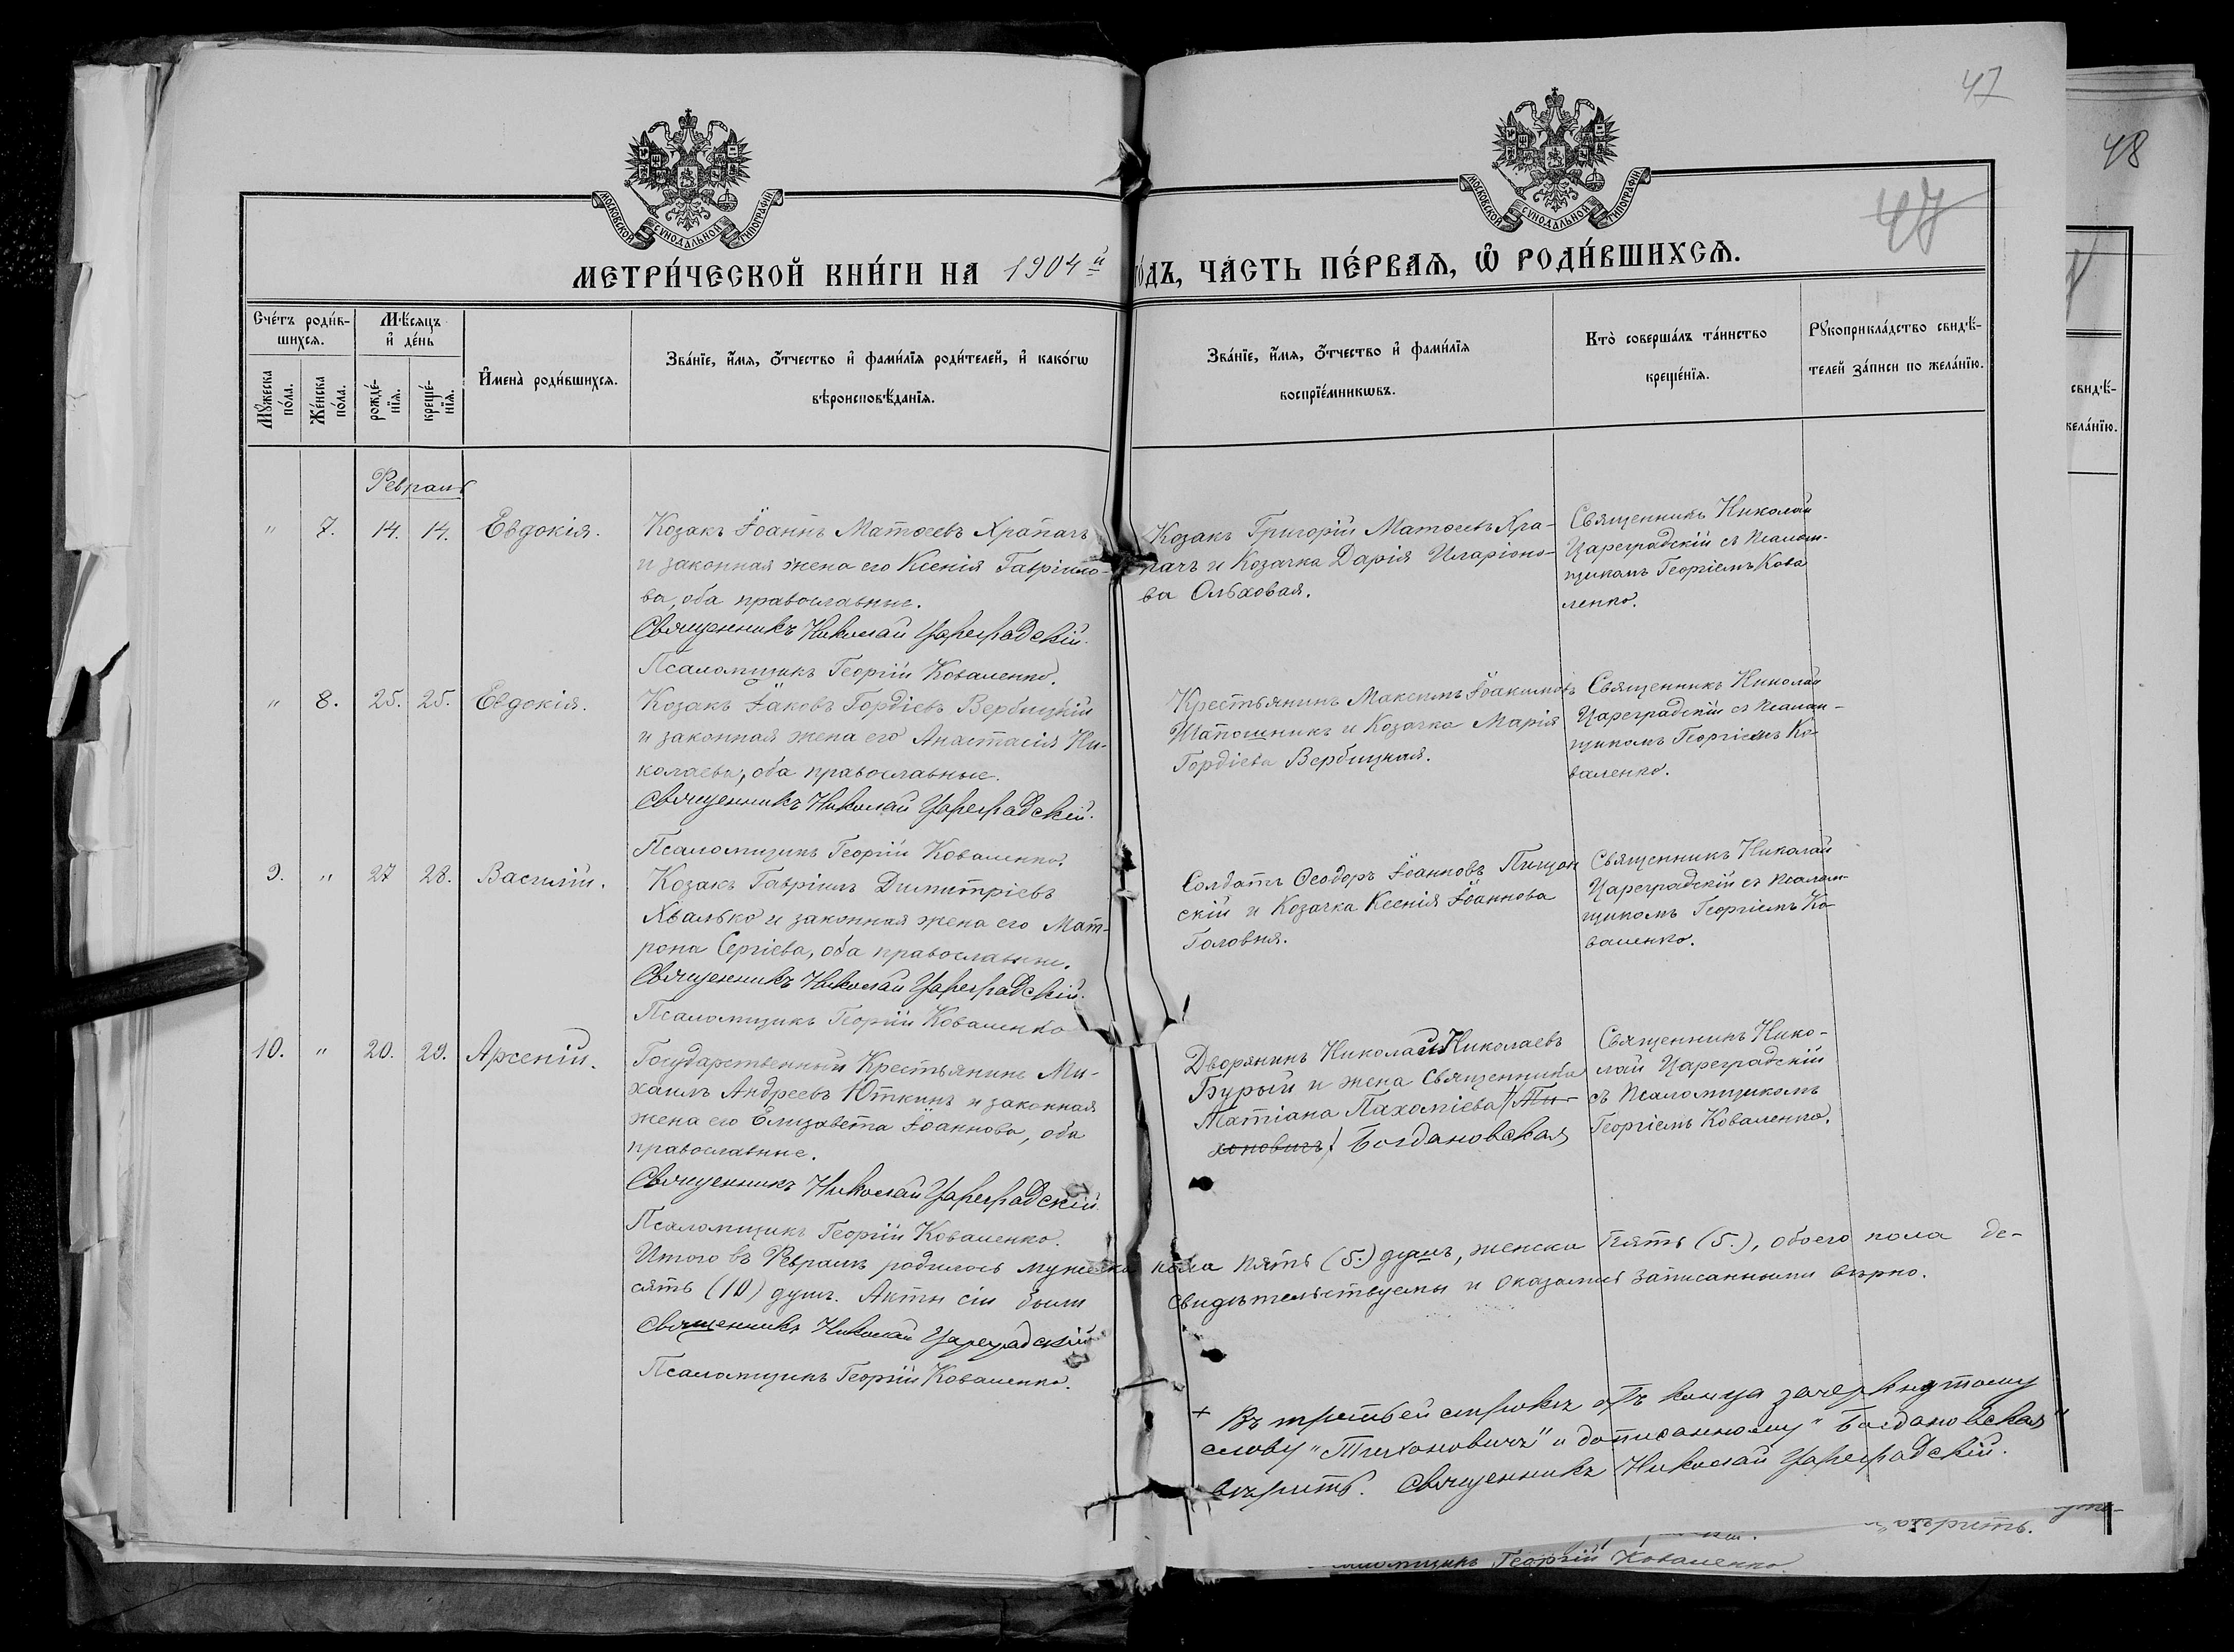 47
48
47
МОСКОВСКОЙ СѴНОДАЛЬНОЙ ТИПОГРАФІИ
МОСКОВСКОЙ СѴНОДАЛЬНОЙ ТИПОГРАФІИ
МЕТРИ́ЧЕСКОЙ КНИ́ГИ НА 1904й го́дъ, ЧА́СТЬ ПЕ́РВАѦ, Ѡ҆ РОДИ́ВШИХСѦ.
Сче́тъ роди́в-
шихсѧ.
Мꙋ́жеска по́ла.
Же́нска по́ла.
Мѣ́сѧцъ
и҆ де́нь
рожде́-
нїѧ.
креще́-
нїѧ.
И҆мена̀ роди́вшихсѧ.
Зва́нїе, и҆́мѧ, ѻ҆́тчество и҆ фами́лїѧ роди́телей, и҆ како́гѡ
вѣроисповѣ́данїѧ.
Зва́нїе, и҆́мѧ, ѻ҆́тчество и҆ фами́лїѧ
воспрїе́мникѡвъ.
Кто̀ соверша́лъ та́инство
креще́нїѧ.
Рꙋкоприкла́дство свидѣ́-
телей за́писи по жела́нїю.
свидѣ́-
жела́нїю.
Февраль
" 7. 14. 14. Евдокія.
Козакъ Іоаннъ Матѳеевъ Храпачъ
и законная жена его Ксенія Гавріило-
ва, оба православные.
Священникъ Николай Цареградскій.
Псаломщикъ Георгій Коваленко.
Козакъ Григорій Матѳеевъ Хра-
пачъ и Козачка Дарія Иларіоно-
ва Ольховая.
Священникъ Николай
Цареградскій съ псалом-
щикомъ Георгіемъ Кова
ленко.
" 8. 25. 25. Евдокія.
Козакъ Іаковъ Гордіевъ Вербицкій
и законная жена его Анастасія Ни-
колаева, оба православные.
Священникъ Николай Цареградскій.
Псаломщикъ Георгій Коваленко.
Крестьянинъ Максимъ Іоакимовъ
Шапошникъ и Козачка Марія
Гордіева Вербицкая.
Священникъ Николай
Цареградскій съ псалом-
щикомъ Георгіемъ Ко-
валенко.
9. " 27 28. Василій.
Козакъ Гавріилъ Димитріевъ
Хвалько и законная жена его Мат-
рона Сергіева, оба православные.
Священникъ Николай Цареградскій.
Псаломщикъ Георгій Коваленко
Солдатъ Ѳеодоръ Іоанновъ Пищан
скій и Козачка Ксенія Іоаннова
Головня.
Священникъ Николай
Цареградскій съ псалом-
щикомъ Георгіемъ Ко-
валенко.
10. " 20. 29. Арсеній.
Государственный Крестьянинъ Ми-
хаилъ Андреевъ Юткинъ и законная
жена его Елизавета Іоаннова, оба
православные.
Священникъ Николай Цареградскій
Псаломщикъ Георгій Коваленко.
Дворянинъ Николай Николаевъ
Бурый и жена Священника
Татіана Пахоміева Ти-
хоновичъ Богдановская
Священникъ Нико-
лай Цареградскій
съ псаломщикомъ
Георгіемъ Коваленко.
Итого въ Февралѣ родилось мужеска пола пять (5.) душъ, женска пять (5.), обоего пола де-
сять (10) душъ. Акты сіи были свидѣтельствуемы и оказались записанными вѣрно.
Священникъ Николай Цареградскій
Псаломщикъ Георгій Коваленко.
+ Въ третьей строкѣ отъ конца зачеркнутому
слову "Тихоновичъ" и дописанному "Богдановская"
вѣрить. Священникъ Николай Цареградскій.
вѣрить.
Георгій Коваленко.